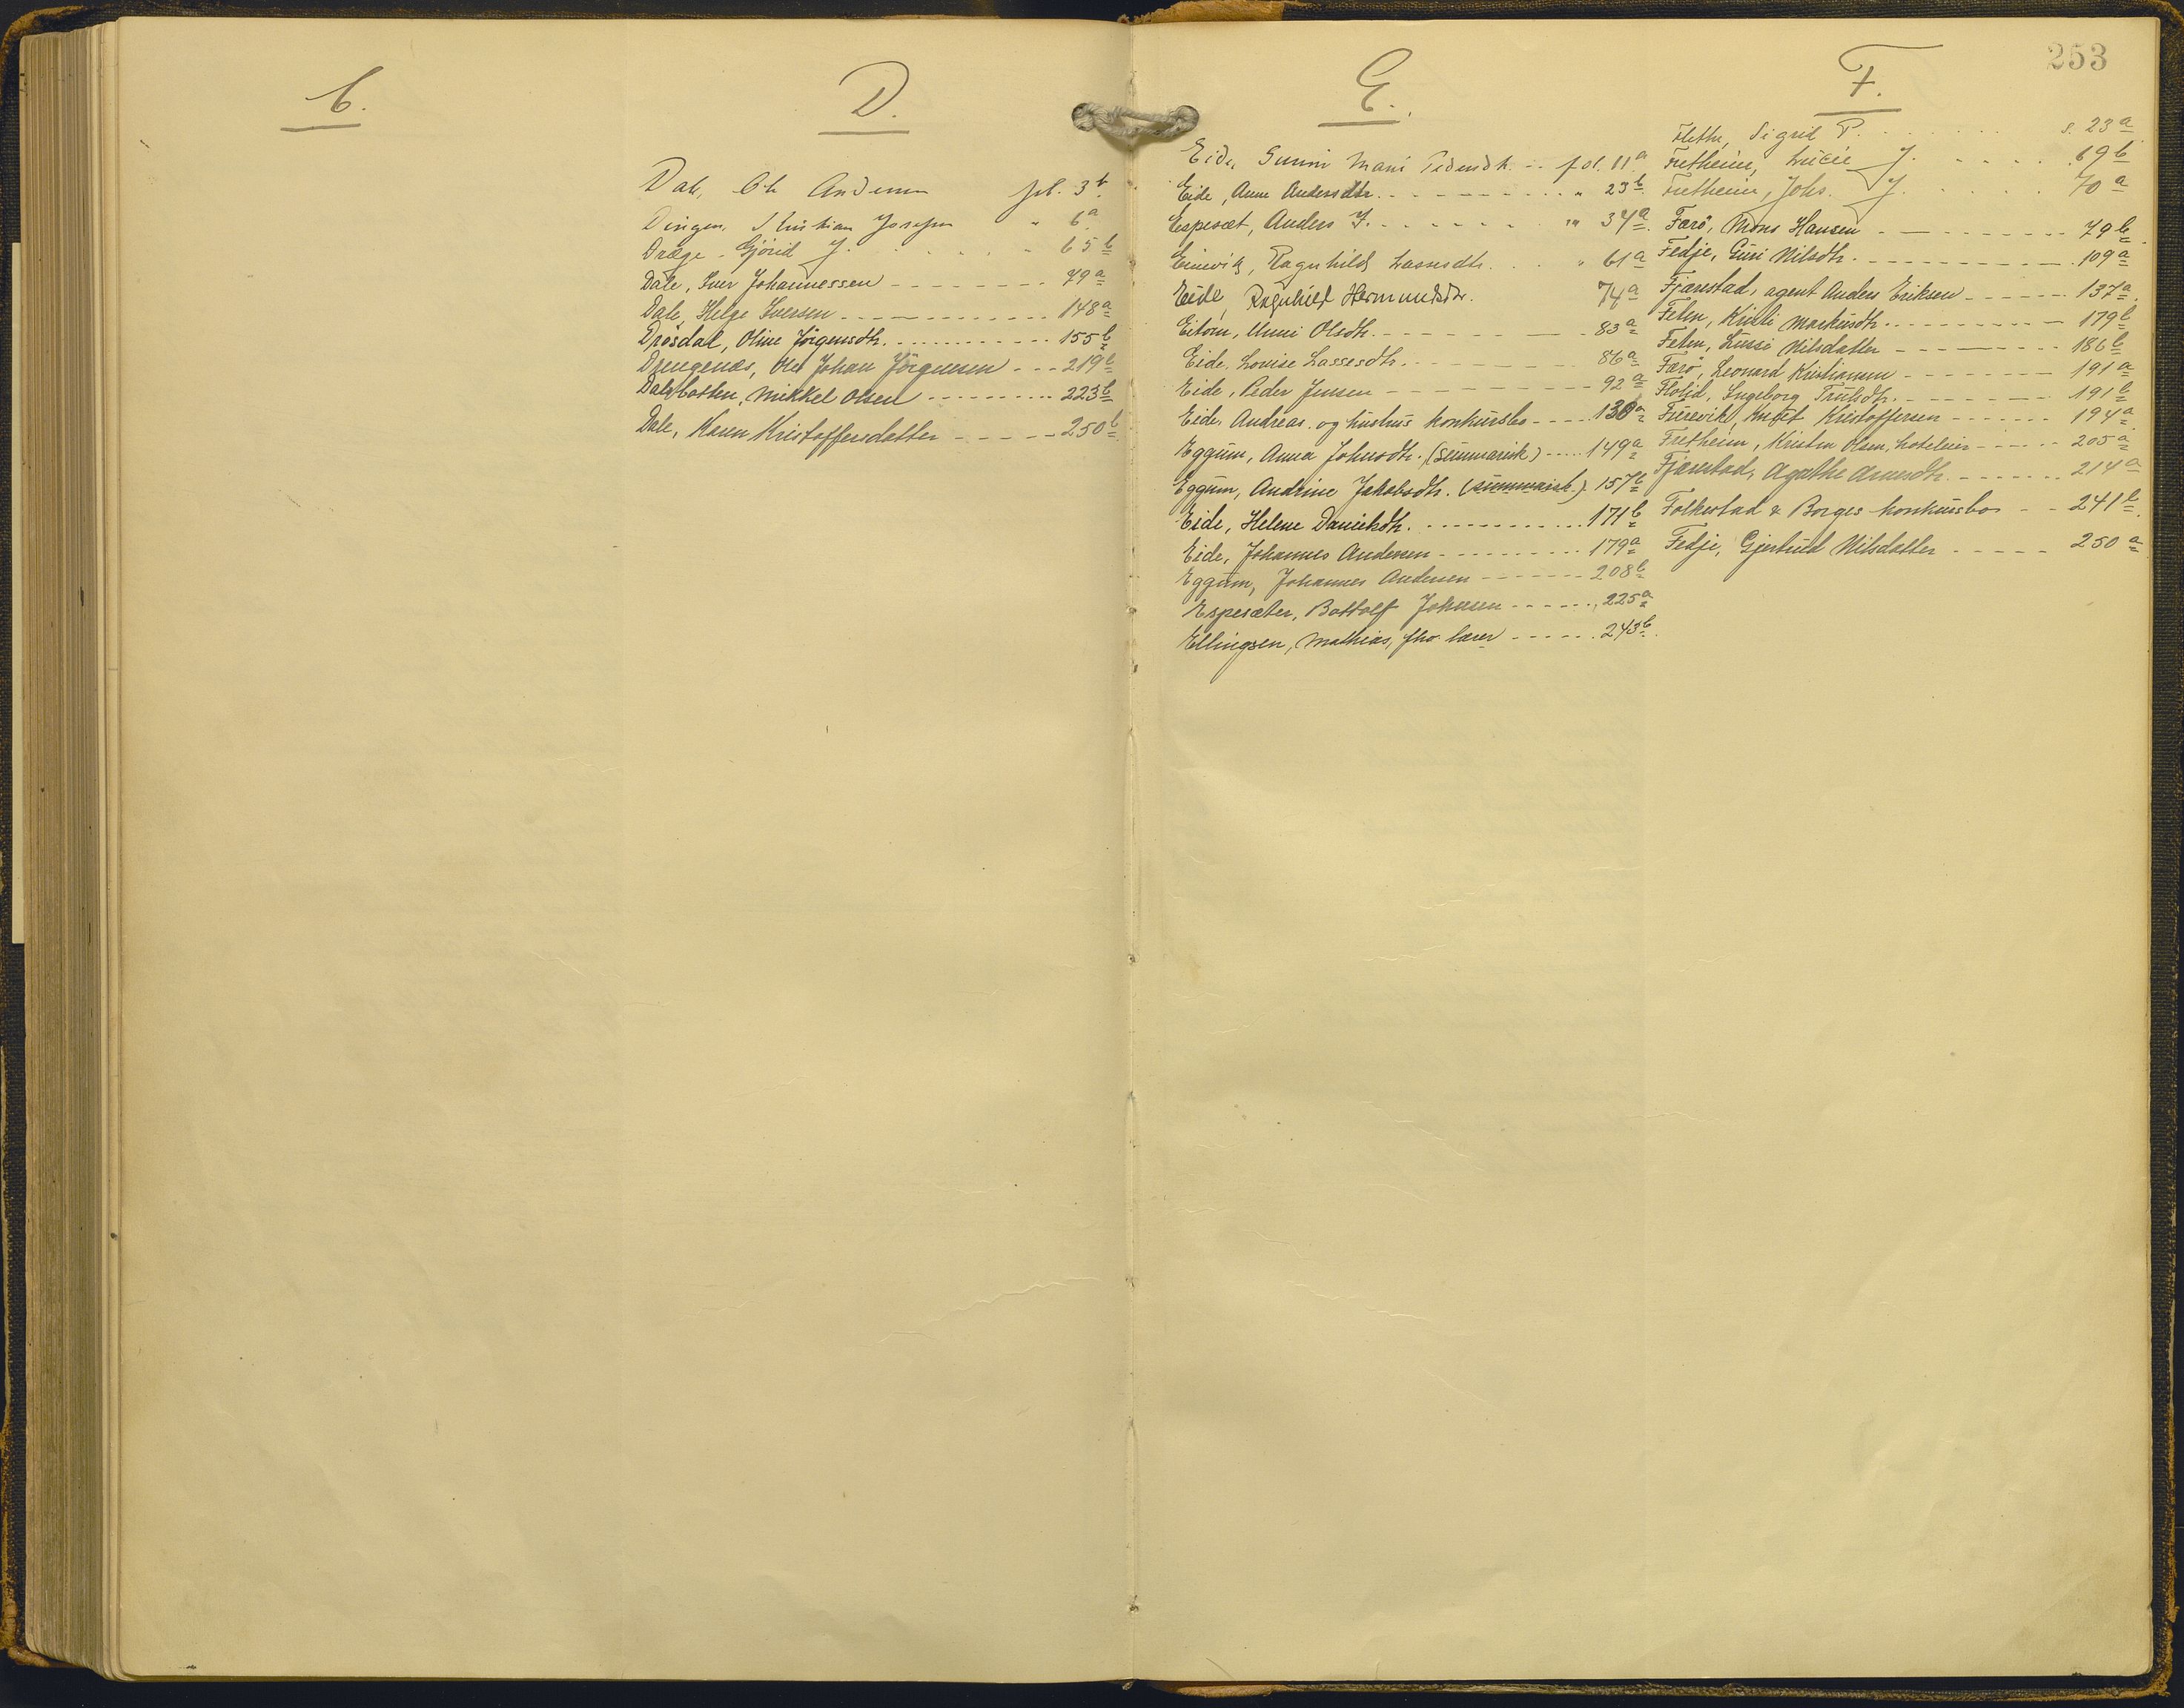 C.
D.
Dale, Ole Andersen fol. 3b
Dingen, Kristian Josefsen " 6a
Dræge, Gjörid J. " 65b
Dale, Iver Johannessen 79a
Dale, Helge Iversen 148a
Drösdal, Oline Jörgensdtr. 155b
Drengenes, Ole Johan Jörgensen 219b
Dalsbotten, Mikkel Olsen 223b
Dale, Karen Kristoffersdatter 250b
253
E.
Eide, Gunni Mari Pedersdtr. fol. 11a
Eide, Anne Andersdtr. " 23b
Espesæt, Anders I. " 34a
Einevik, Ragnhild Lassesdtr. " 61a
Eide, Ragnhild Hermundsdtr. 74a
Eitorn, Unni Olsdtr. 83a
Eide, Lovise Lassesdtr. 86a
Eide, Peder Jensen 92a
Eide, Andreas og hustrus konkursbo 130a
Eggum, Anna Johnsdtr. (summarisk) 149a
Eggum, Andrine Jakobsdtr. (summarisk) 157b
Eide, Helene Danielsdtr. 171b
Eide, Johannes Andersen 179a
Eggum, Johannes Andersen 208b
Espesæter, Bottolf Johnsen 225a
Ellingsen, Mathias, fhv. lærer 243b
F.
Flethe, Sigrid P. s. 23a
Fretheim, Lucie J. 69b
Fretheim, Johs. J. 70a
Færö, Mons Hansen 79b
Fedje, Guri Nilsdtr. 109a
Fjærestad, agent Anders Eriksen 137a
Feten, Kirsti Markusdtr. 179b
Feten, Lussi Nilsdatter 186b
Færö, Leonard Kristiansen 191a
Flolid, Ingeborg Trulsdtr. 191b
Furevik, Kristoffersen 194a
Fretheim, Kristen Olsen, hoteleier 205a
Fjærestad, Agathe Arnesdtr. 214a
Folkestad & Borges konkursbo 241b
Fedje, Gjertrud Nilsdatter 250a